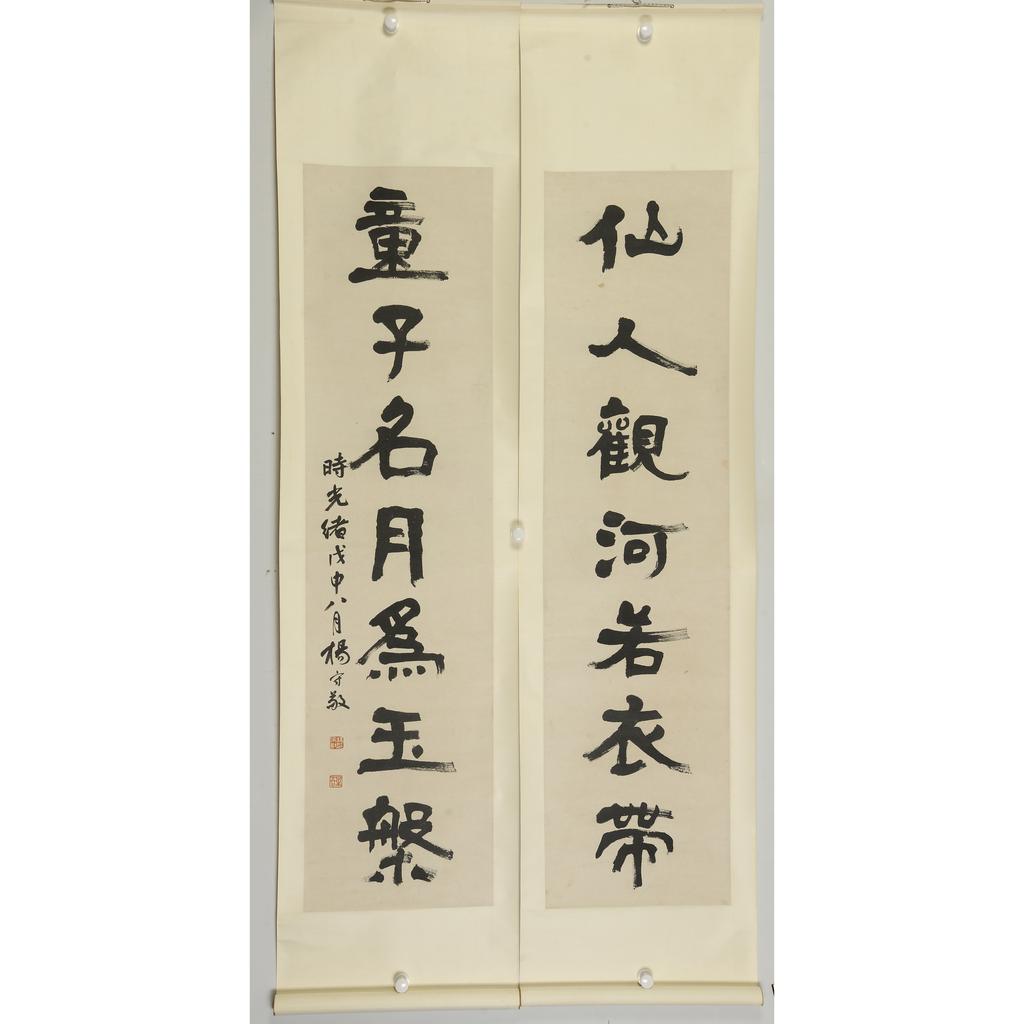 仙人觀河若衣帶
童子名月爲玉槃
時光緒戊申八月楊守敬